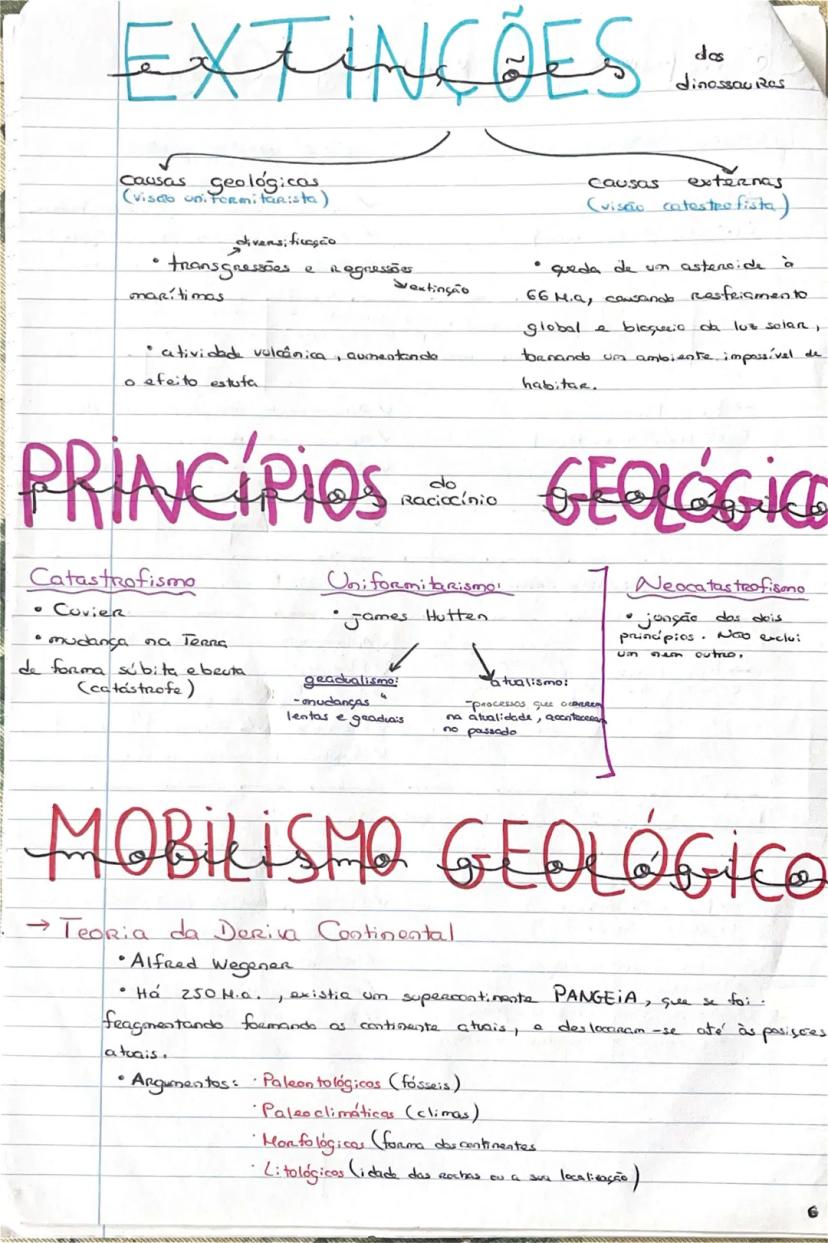 EXTINÇÕES dos
extinções dinossauros
causas geológicas
(visão uniformitarista)
causas externas
(visão catastrofista)
diversificação
• transgressões e regressões
extinção
marítimas
• atividade vulcânica, aumentando
o efeito estufa
• queda de um asteroide à
66 M.a, causando resfriamento
global e bloqueio da luz solar,
tornando um ambiente impossível de
habitar.
PRINCÍPIOS do GEOLÓGICO
princípios RACIOCÍNIO geológico
Catastrofismo
• Cuvier
• mudança na Terra
de forma súbita e bruta
(catástrofe)
Uniformitarismo:
• James Hutten
gradualismo:
-mudanças
lentas e graduais
atualismo:
-processos que ocorrem
na atualidade, aconteceram
no passado
Neocatastrofismo
• junção dos dois
princípios. Não exclui
um nem outro.
MOBILISMO GEOLÓGICO
mobilismo geológico
→ Teoria da Deriva Continental
• Alfred Wegener
• Há 250 M.a., existia um supercontinente PANGEIA, que se foi
fragmentando formando os continente atuais, e deslocaram-se até às posições
atuais.
• Argumentos: · Paleontológicos (fósseis)
· Paleoclimáticos (climas)
· Morfológicos (forma dos continentes
· Litológicos (idade das rochas ou a sua localização)
6